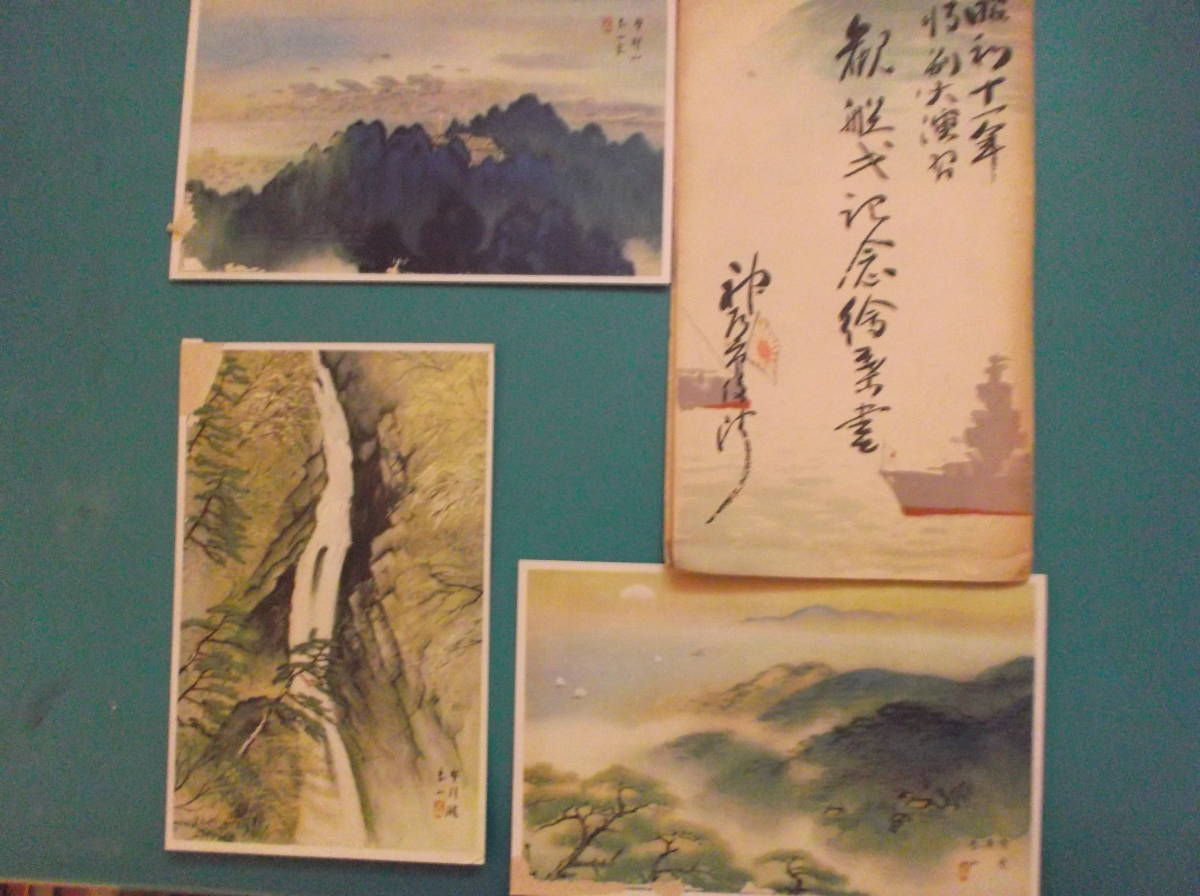 昭和十一年
特別大演習
觀艦式記念繪葉書
神戸市役所
布引瀧